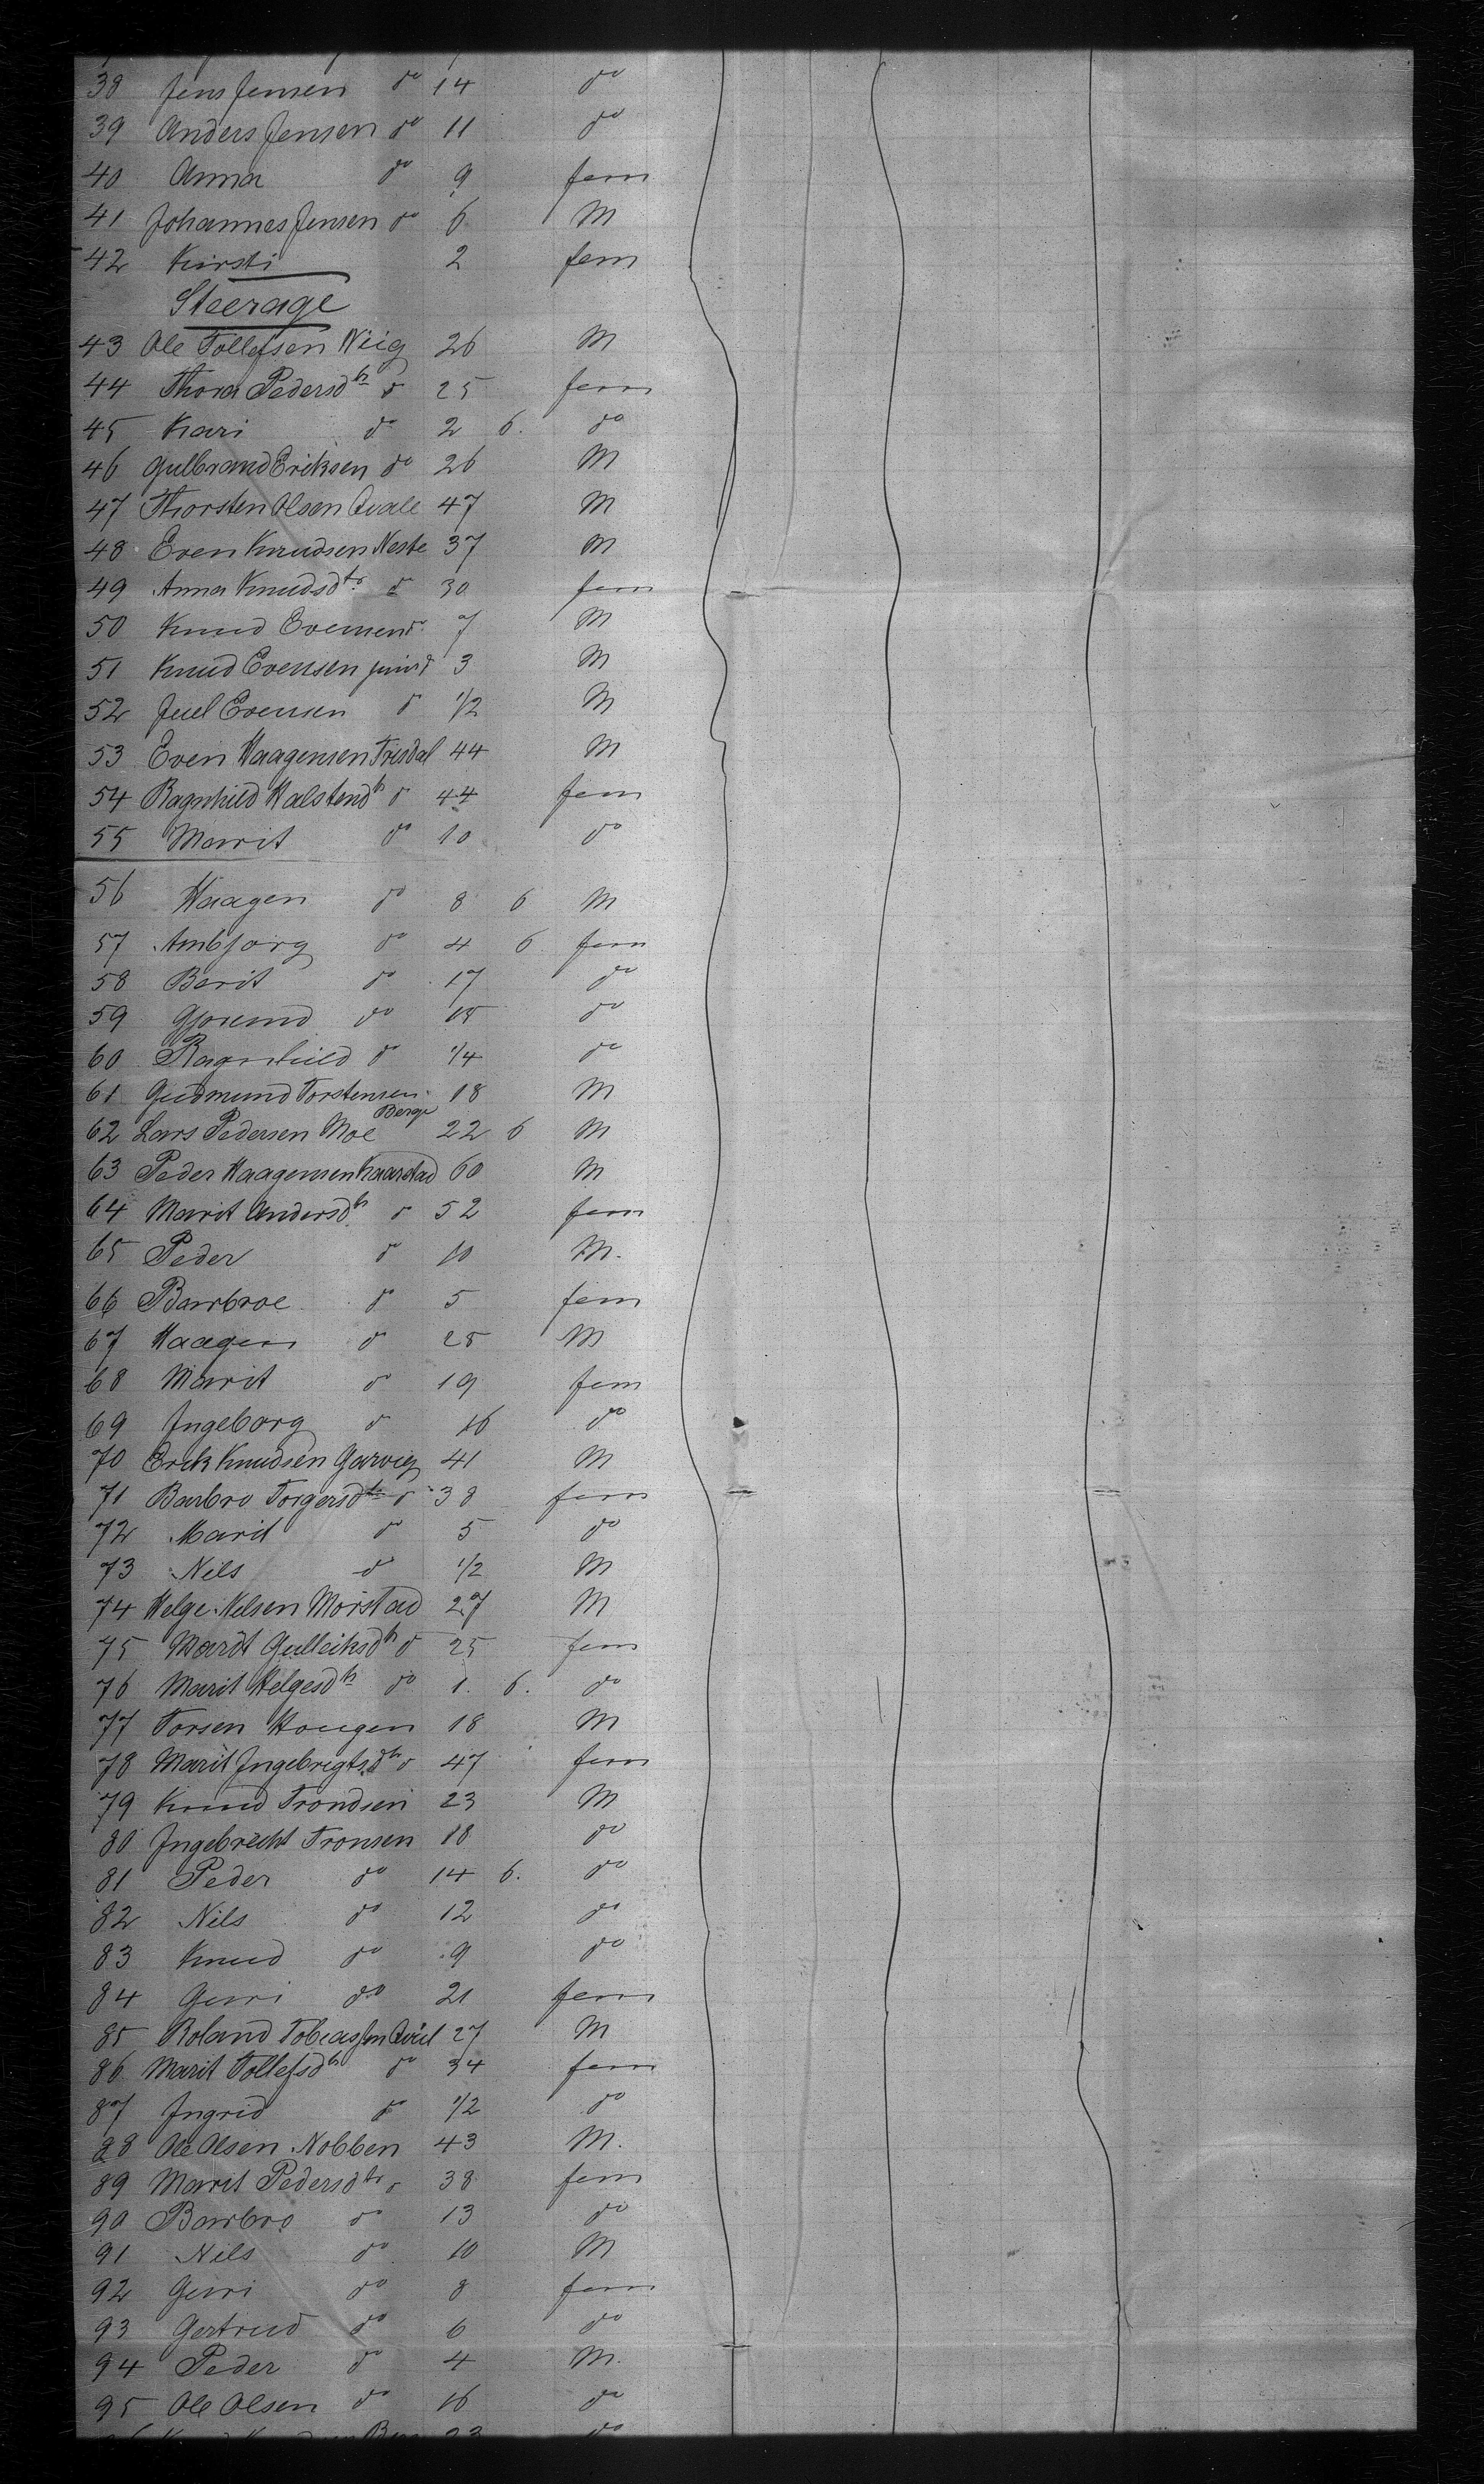 38 Jens Jensen do 14 do
39 Anders Jensen do 11 do
40 Anna do 9 fem
41 Johannes Jensen do 6 M
42 Kirsti 2 fem
Steerage
43 Ole Tollefsen Niig 26 M
44 Thora Pedersdtr do 25 fem
45 Kari do 2 6. do
46 Gulbrand Eriksen do 26 M
47 Thorsten Olsen Qvale 47 M
48 Even Knudsen Neste 37 M
49 Anna Knudsdtr do 30 fem
50 Knud Evensen do 7 M
51 Knud Evensen junr do 3 M
52 Juel Evensen do 1/2 M
53 Even Haagensen Trisdal 44 M
54 Ragnhild Halstendtr do 44 fem
55 Marit do 10 do
56 Haagen do 8 6 M
57 Ambjorg do 4 6 fem
58 Berit do 17 do
59 Gjorund do 15 do
60 Ragnhild do 1/4 do
61 Gudmund Torstensen 18 M
Berge
62 Lars Pedersen Moe 22 6 M
63 Peder Haagensen Kaarstad 60 M
64 Marit Andersdtr do 52 fem
65 Peder do 10 M.
66 Barbroe do 5 fem
67 Haagen do 25 M
68 Marit do 19 fem
69 Ingeborg do 16 do
70 Erik Knudsen Garvig 41 M
71 Barbro Torgersdtr do 38 fem
72 Marit do 5 do
73 Nils do 1/2 M
74 Helge Nelsen Morstad 27 M
75 Marit Gulleiksdtr do 25 fem
76 Marit Helgesdtr do 1. 6. do
77 Torsen Hougen 18 M
78 Marit Ingebrigtsdtr do 47 fem
79 Knud Trondsen 23 M
80 Ingebrecht Tronsen 18 do
81 Peder do 14 6. do
82 Nils do 12 do
83 Knud do 9 do
84 Guri do 21 fem
85 Roland Tobiassen 27 M
86 Marit Tollefsdtr do 34 fem
87 Ingrid do 1/2 do
88 Ole Olsen Nobben 43 M.
89 Marit Pedersdtr do 38 fem
90 Barbro do 13 do
91 Nils do 10 M
92 Guri do 8 fem
93 Gertrud do 6 do
94 Peder do 4 M.
95 Ole Olsen do 16 do